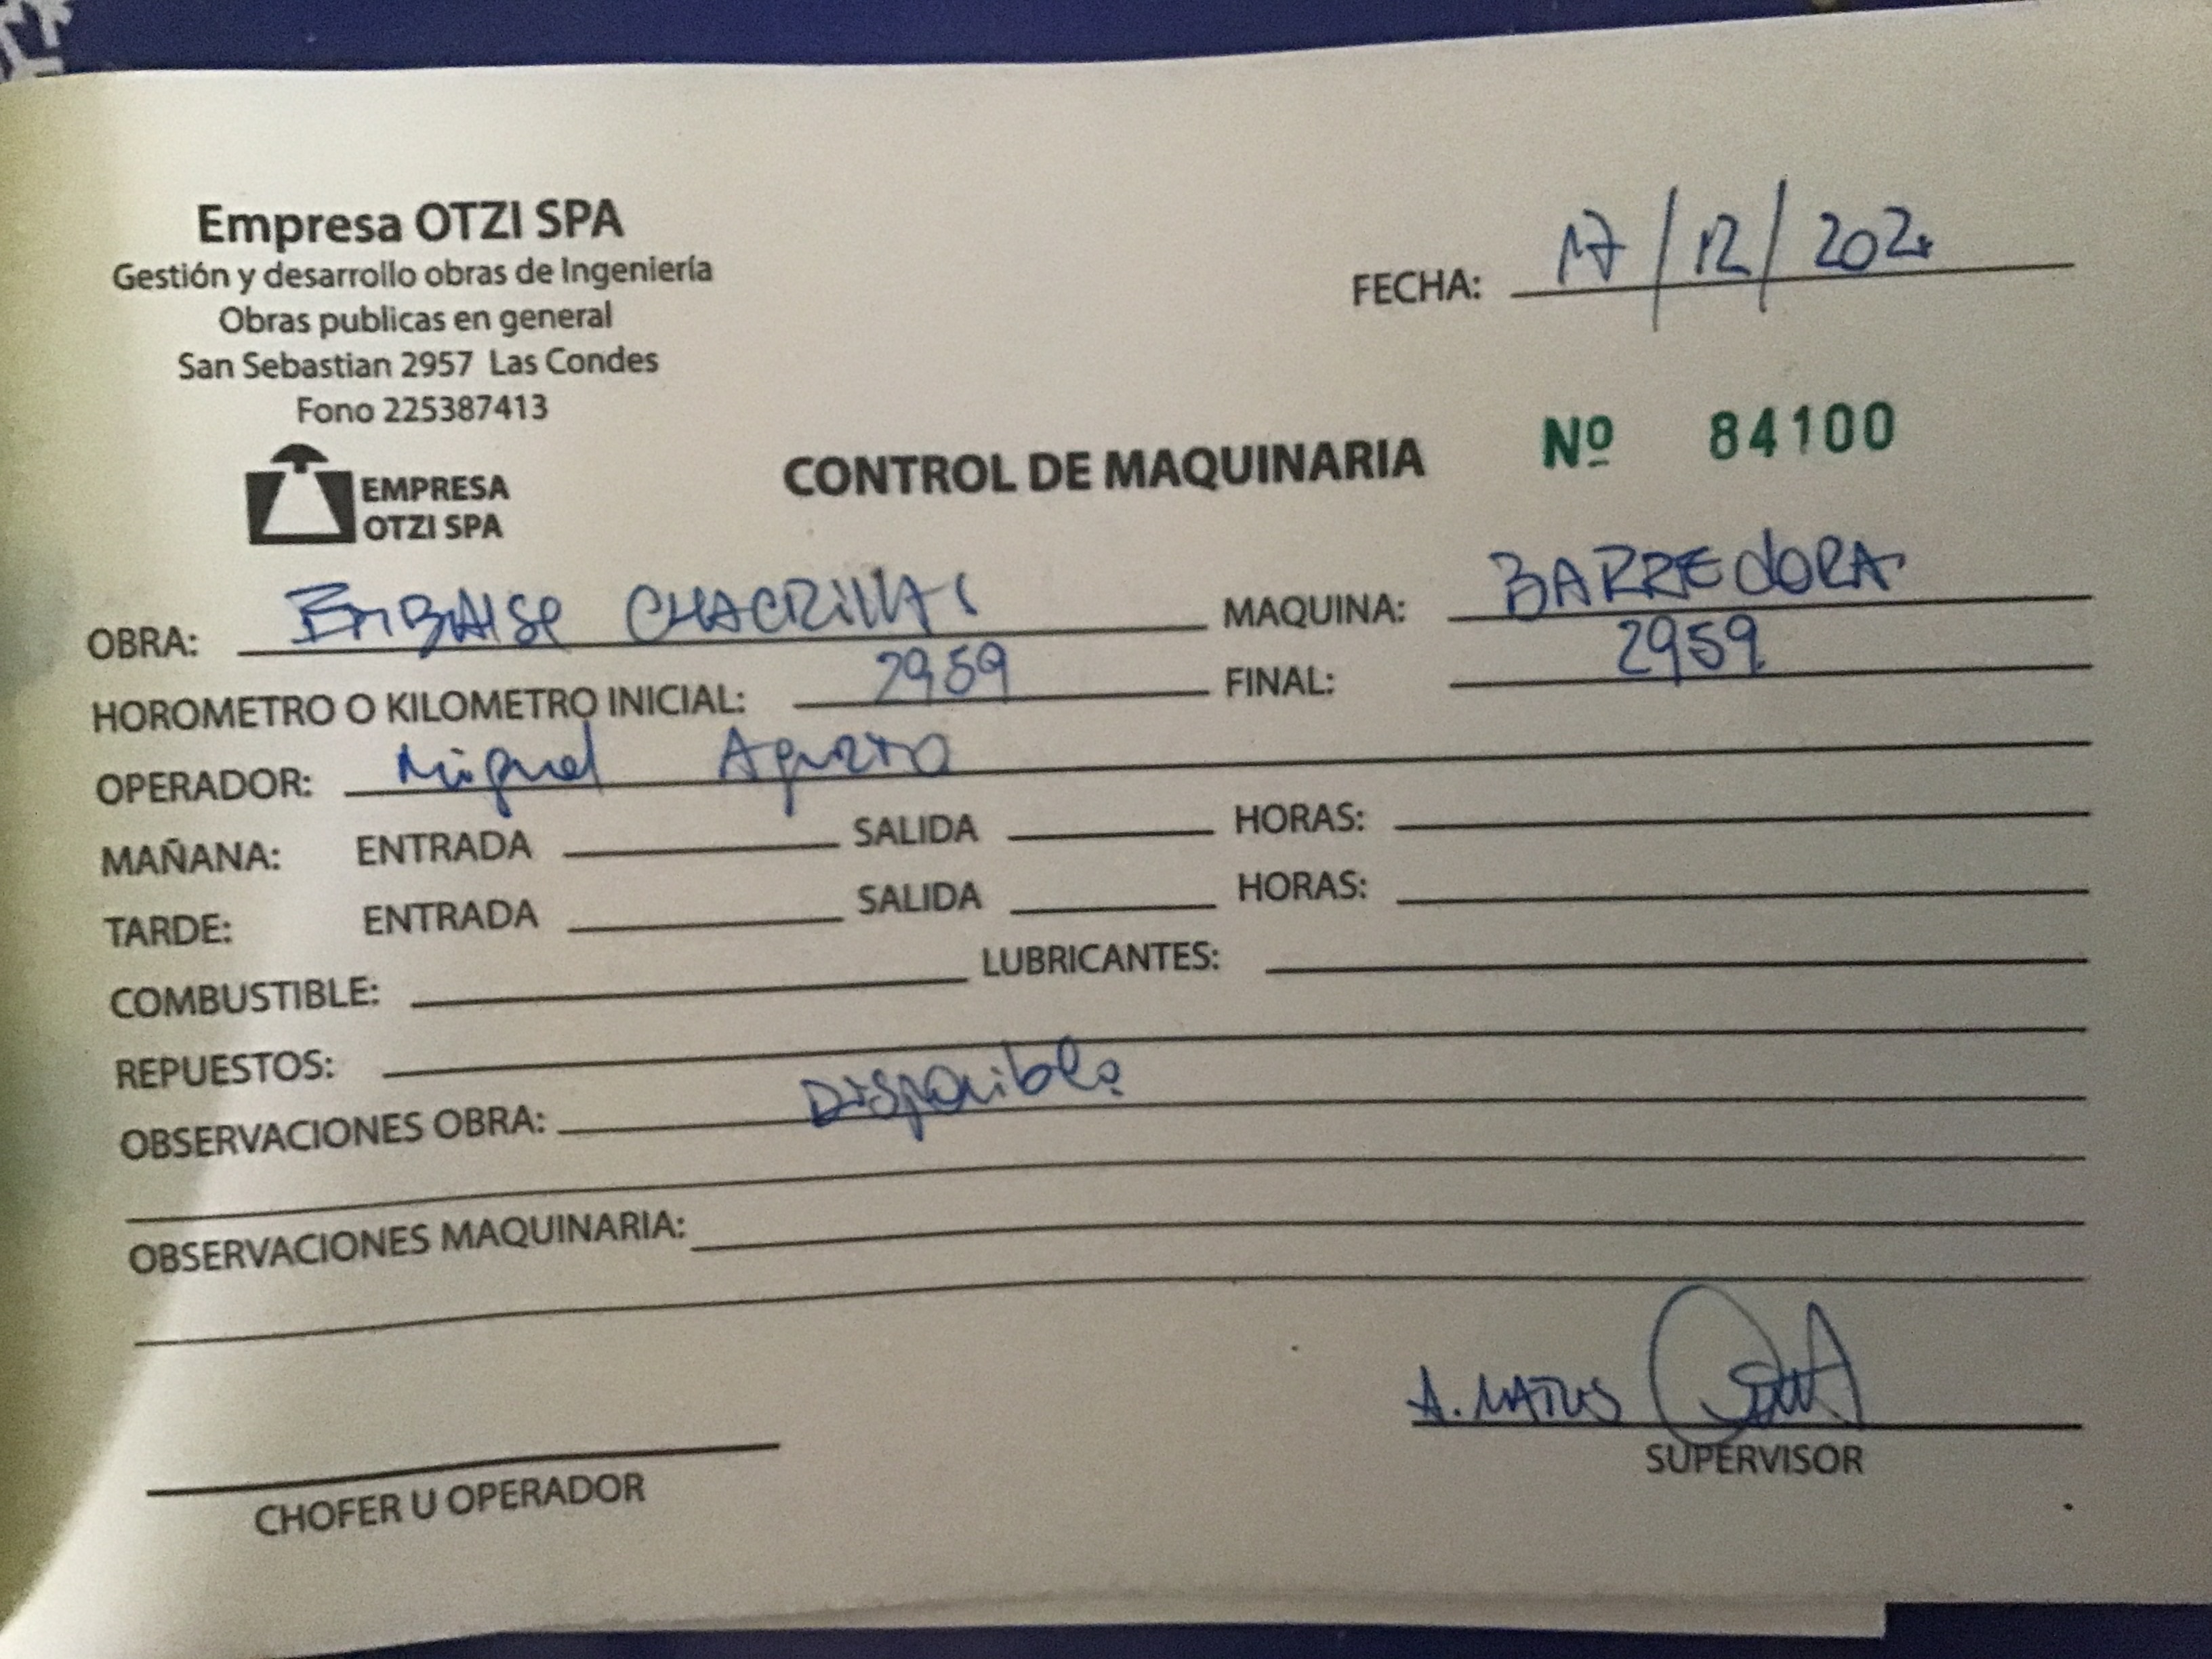 Empresa OTZI SPA
Gestión y desarrollo obras de Ingeniería
Obras publicas en general
San Sebastian 2957 Las Condes
Fono 225387413
FECHA: 17/12/202
EMPRESA
OTZI SPA
CONTROL DE MAQUINARIA Nº 84100
OBRA: EMBALSE CHACRILLAS MAQUINA: BARREdORA
HOROMETRO O KILOMETRO INICIAL: 2959 FINAL: 2959
OPERADOR: Miguel
MAÑANA: ENTRADA SALIDA HORAS:
TARDE: ENTRADA SALIDA HORAS:
COMBUSTIBLE: LUBRICANTES:
REPUESTOS:
OBSERVACIONES OBRA: Disponible
OBSERVACIONES MAQUINARIA:
A. Matus
CHOFER U OPERADOR SUPERVISOR